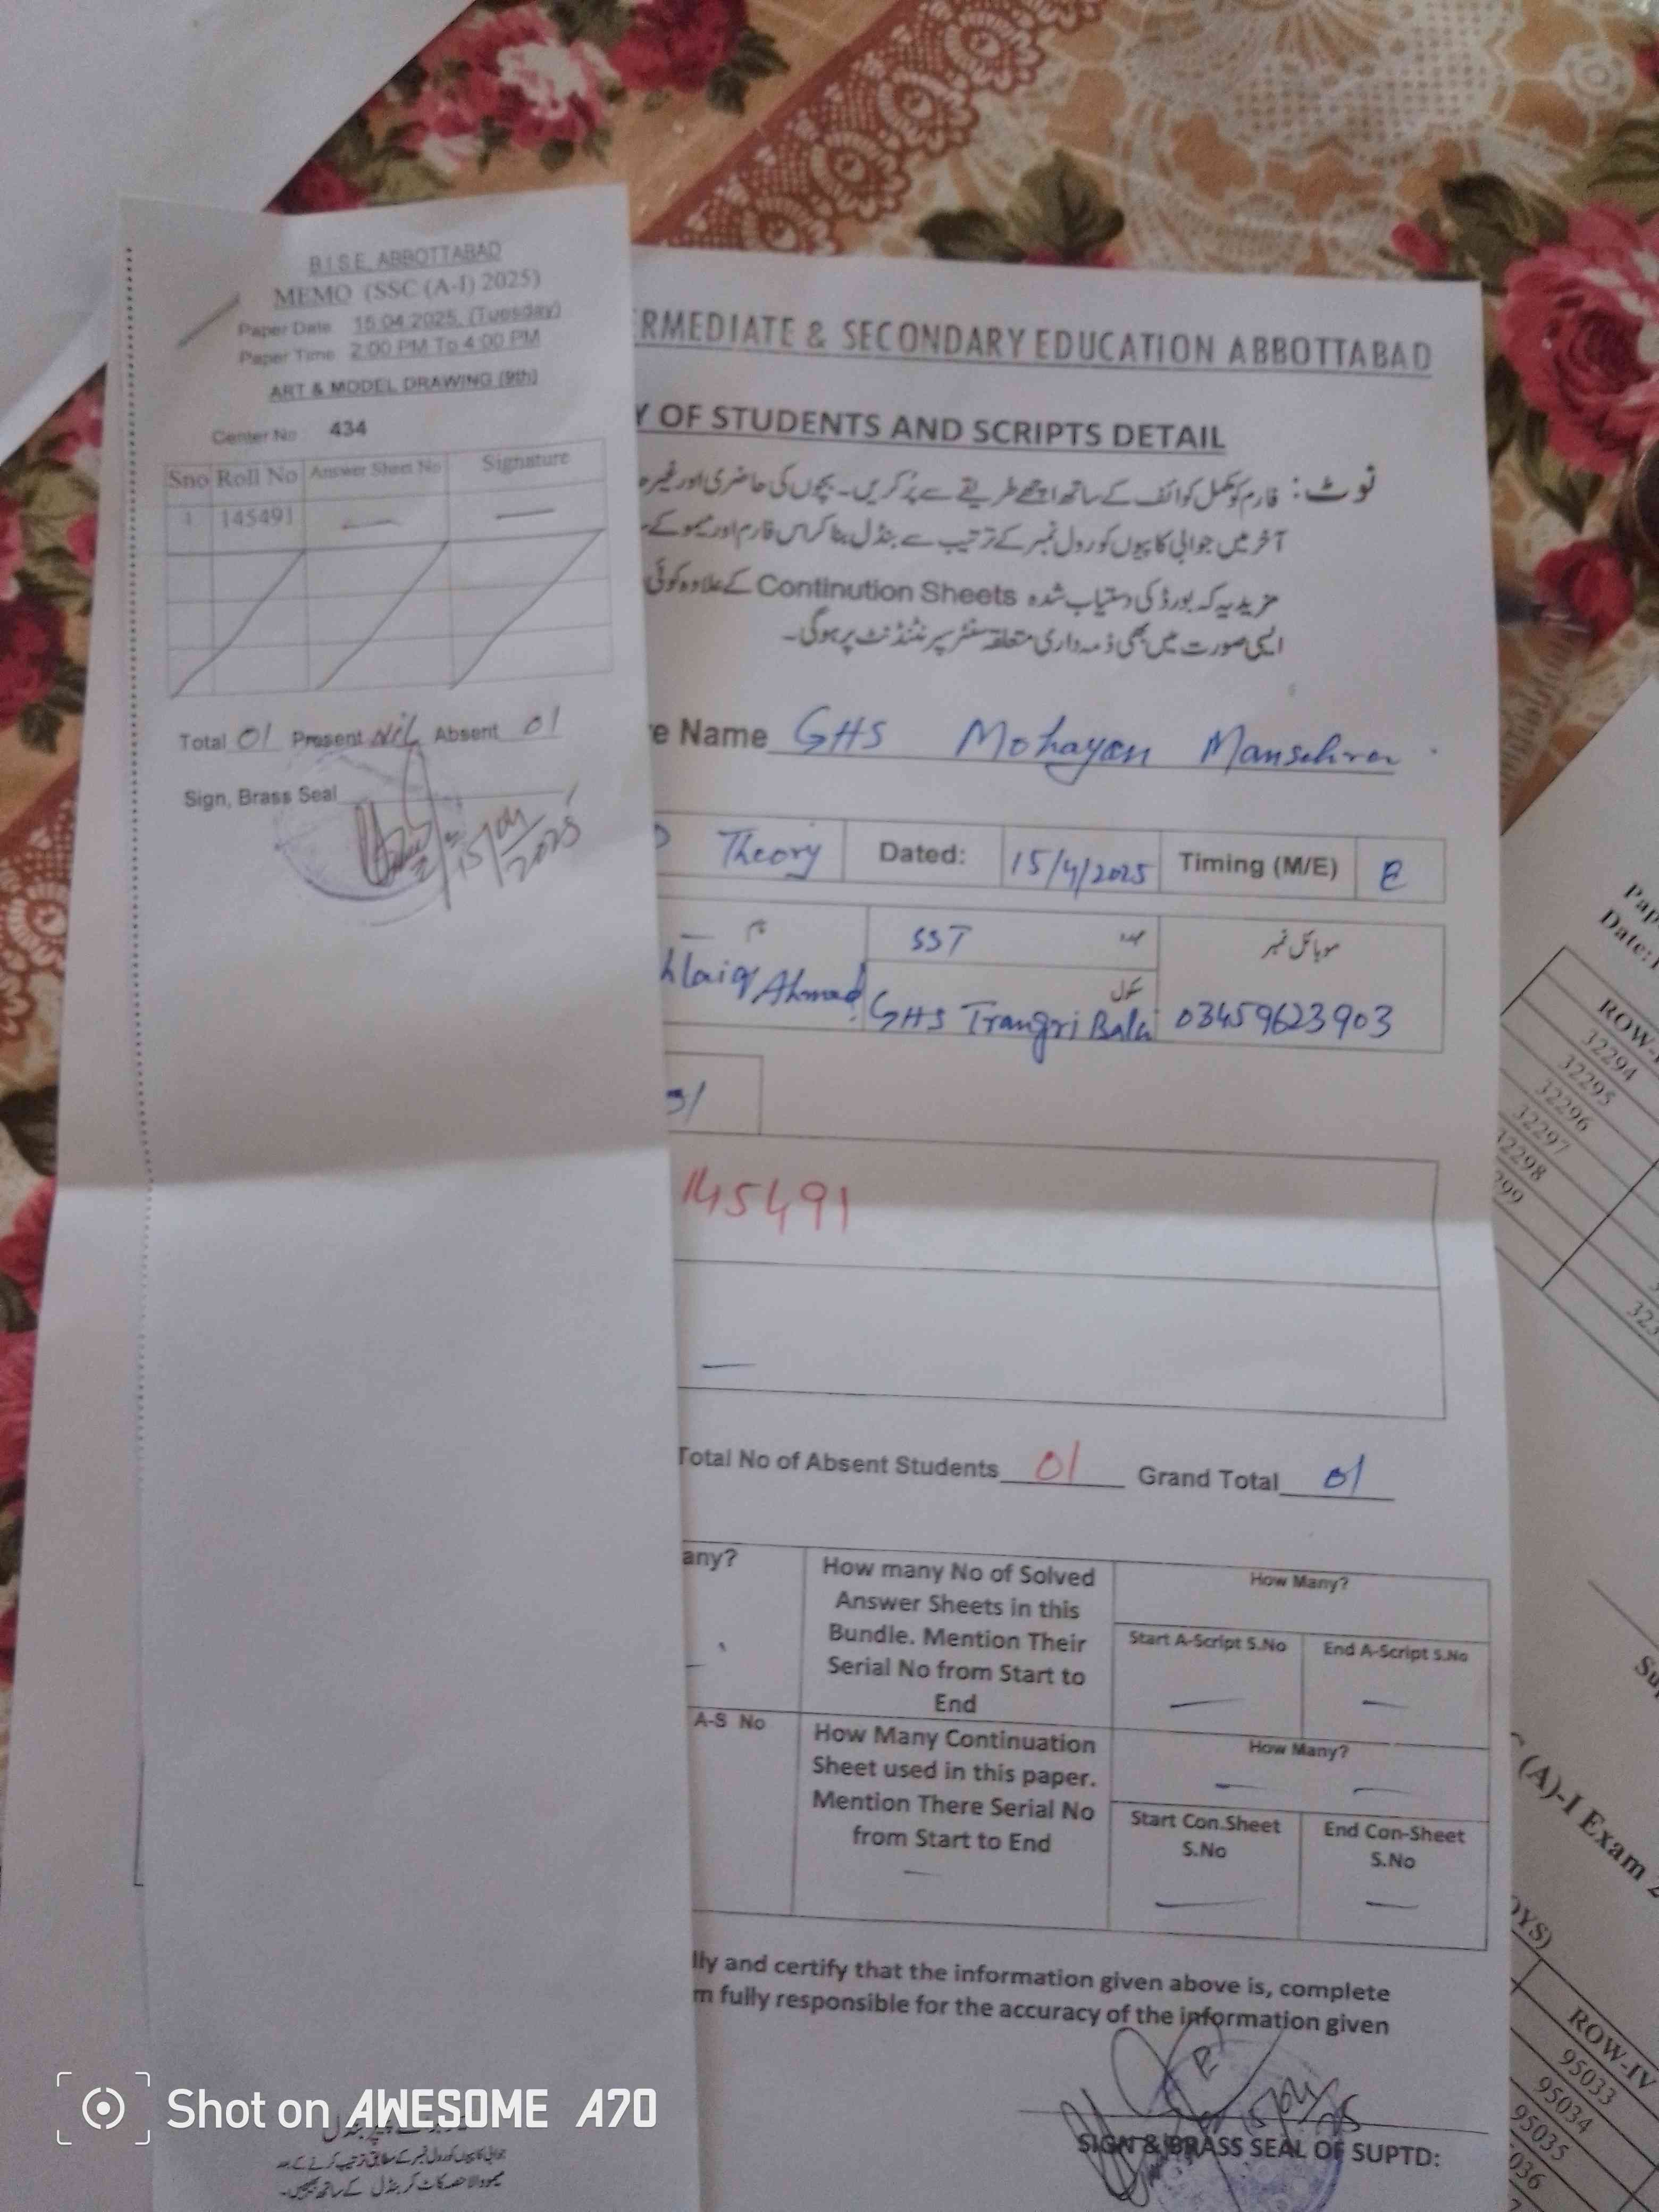 B.I.S.E. ABBOTTABAD
MEMO (SSC (A-I) 2025)
Paper Date 15.04.2025, (Tuesday)
Paper Time 2:00 PM To 4:00 PM
ART & MODEL DRAWING (9th)
Center No 434
Sno Roll No Answer Sheet No Signature
1 145491 — —
Total 01 Present Nil Absent 01
Sign, Brass Seal
15/04/2025
ERMEDIATE & SECONDARY EDUCATION ABBOTTABAD
Y OF STUDENTS AND SCRIPTS DETAIL
نوٹ: فارم کو مکمل کوائف کے ساتھ اچھے طریقے سے پُر کریں۔ بچوں کی حاضری اور غیر
آخر میں جوابی کاپیوں کو رول نمبر کے ترتیب سے بنڈل بنا کر اس فارم اور میمو کے
مزید یہ کہ بورڈ کی دستیاب شدہ Continution Sheets کے علاوہ کوئی
ایسی صورت میں بھی ذمہ داری متعلقہ سنٹر سپرنٹنڈنٹ پر ہوگی۔
re Name GHS Mohayan Mansehra
Theory Dated: 15/4/2025 Timing (M/E) E
نام SST عہدہ موبائل نمبر
hlaiq Ahmad سکول GHS Trangri Bala 03459623903
01
145491
—
Total No of Absent Students 01 Grand Total 01
any?
How many No of Solved
Answer Sheets in this
Bundle. Mention Their
Serial No from Start to
End
How Many?
Start A-Script S.No End A-Script S.No
— —
A-S No
How Many Continuation
Sheet used in this paper.
Mention There Serial No
from Start to End
—
How Many?
— —
Start Con.Sheet S.No End Con-Sheet S.No
— —
lly and certify that the information given above is, complete
m fully responsible for the accuracy of the information given
15/04/25
SIGN & BRASS SEAL OF SUPTD:
جوابی کاپیوں کو رول نمبر کے مطابق ترتیب کرنے کے بعد
میمو والا حصہ کاٹ کر بنڈل کے ساتھ بھیجیں۔
Pap
Date:
ROW-
32294
32295
32296
32297
32298
299
323
Su
(A)-I Exam 2
OYS)
ROW-IV
95033
95034
95035
036
Shot on AWESOME A70